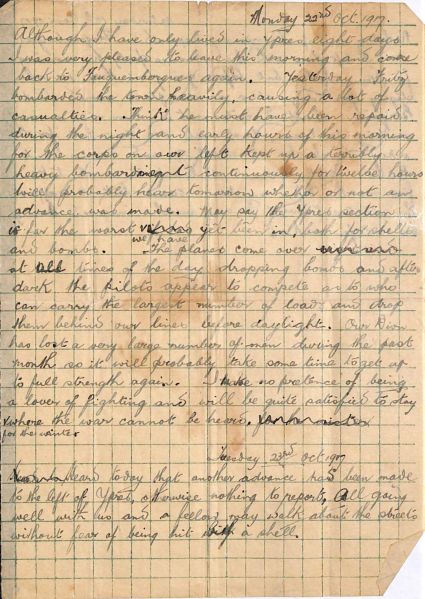 Monday 22nd Oct. 1917.
Although I have only lived in Ypres eight days
I was very pleased to leave this morning and come
back to again. Yesterday Fritz
bombarded the town heavily, causing a lot of
casualties. Think he must have been repaid
during the night and early hours of this morning
for the corps on our left kept up a terribly
heavy bombardment continuously for twelve hours
Will probably hear tomorrow whether or not an
advance was made. May say the Ypres section
is far the worst we have yet been in, both for shells
and bombs. The planes come over
at all times of the day dropping bombs and after
dark the pilots appear to compete as to who
can carry the largest number of loads and drop
them behind our lines before daylight. Our Divn
has lost a very large number of men during the past
month so it will probably take some time to get up
to full strength again. I make no pretence of being
a lover of fighting and will be quite satisfied to stay
where the war cannot be heard.
for the winter
Tuesday 23rd Oct 1917
Heard today that another advance has been made
to the left of Ypres, otherwise nothing to report. All going
well with us and a fellow may walk about the streets
without fear of being hit with a shell.